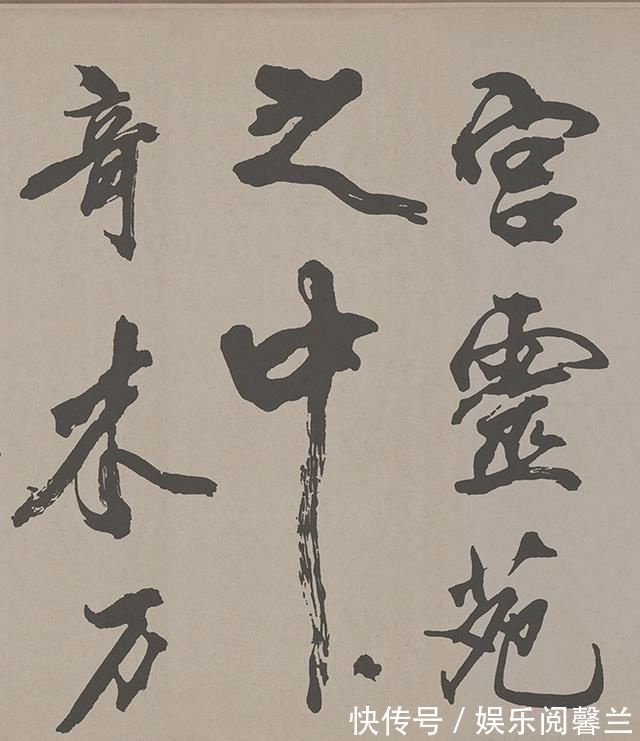 宫靈苑
之中
竒木万
快传号/娱乐阅馨兰